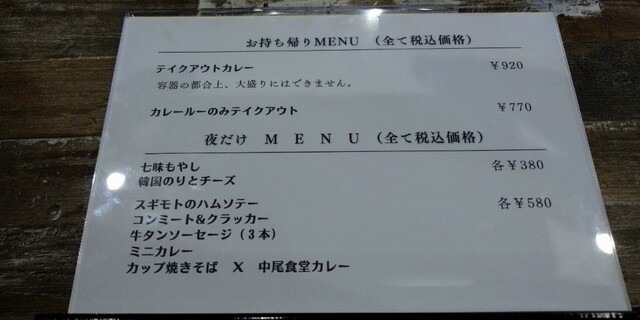 お持ち帰りMENU （全て税込価格）
テイクアウトカレー ￥920
容器の都合上、大盛りにはできません。
カレールーのみテイクアウト ￥770
夜だけ ＭＥＮＵ （全て税込価格）
七味もやし 各￥380
韓国のりとチーズ
スギモトのハムソテー 各￥580
コンミート&クラッカー
牛タンソーセージ（３本）
ミニカレー
カップ焼きそば Ｘ 中尾食堂カレー